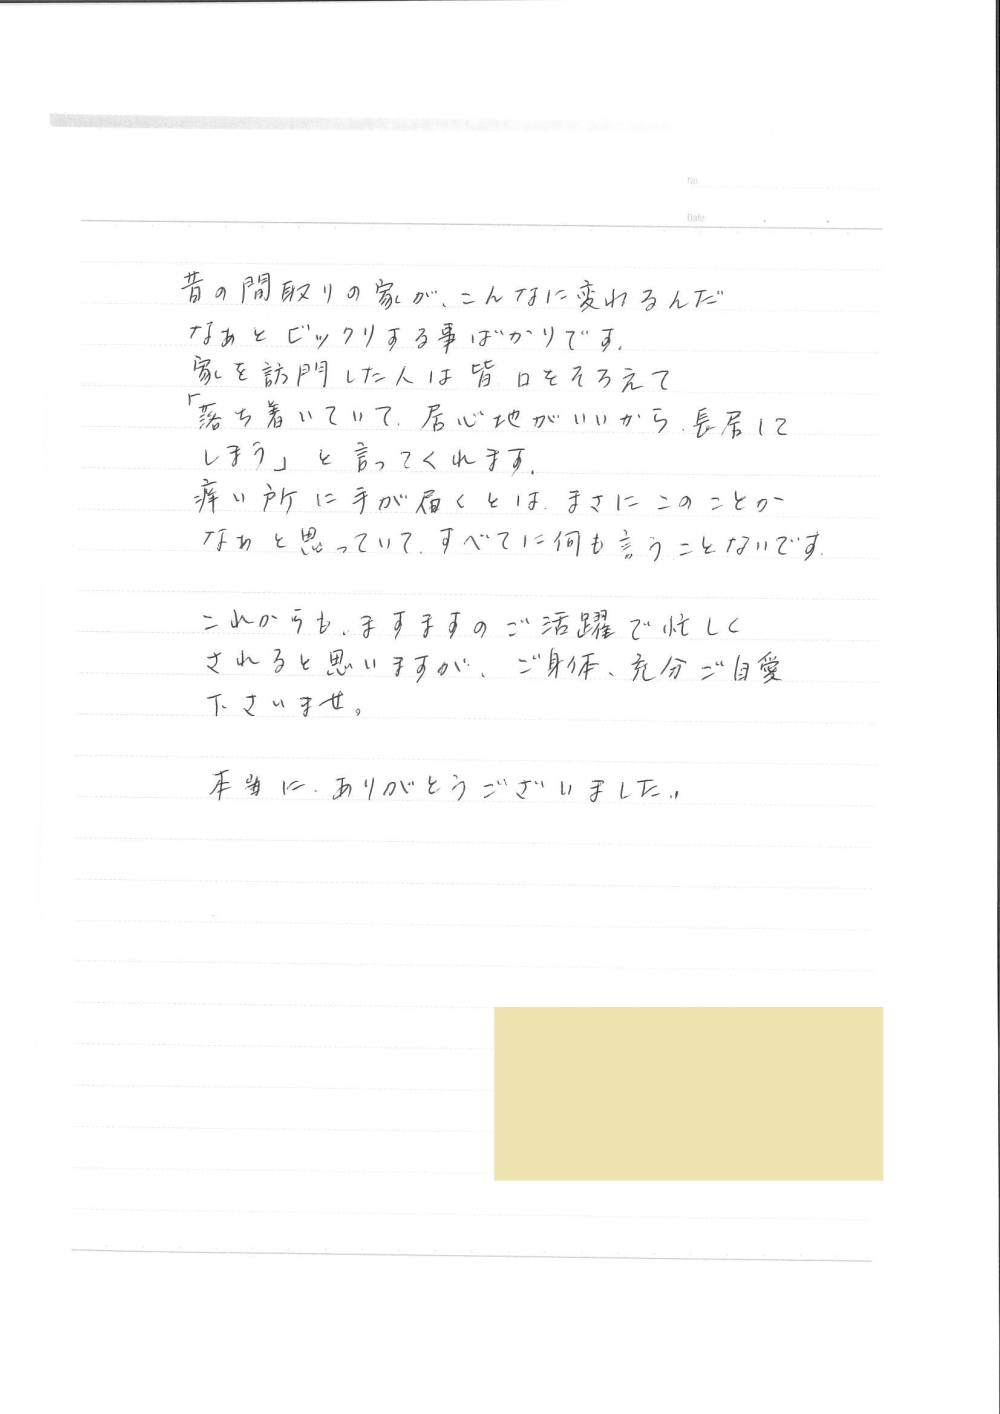 No.
Date
昔の間取りの家が、こんなに変わるんだ
なぁとビックリする事ばかりです。
家を訪問した人は皆口をそろえて
「落ち着いていて、居心地がいいから、長居して
しまう」と言ってくれます。
痒い所に手が届くとは、まさにこのことか
なぁと思っていて、すべてに何も言うことないです。
これからも、ますますのご活躍で忙しく
されると思いますが、ご身体、充分ご自愛
下さいませ。
本当に、ありがとうございました。